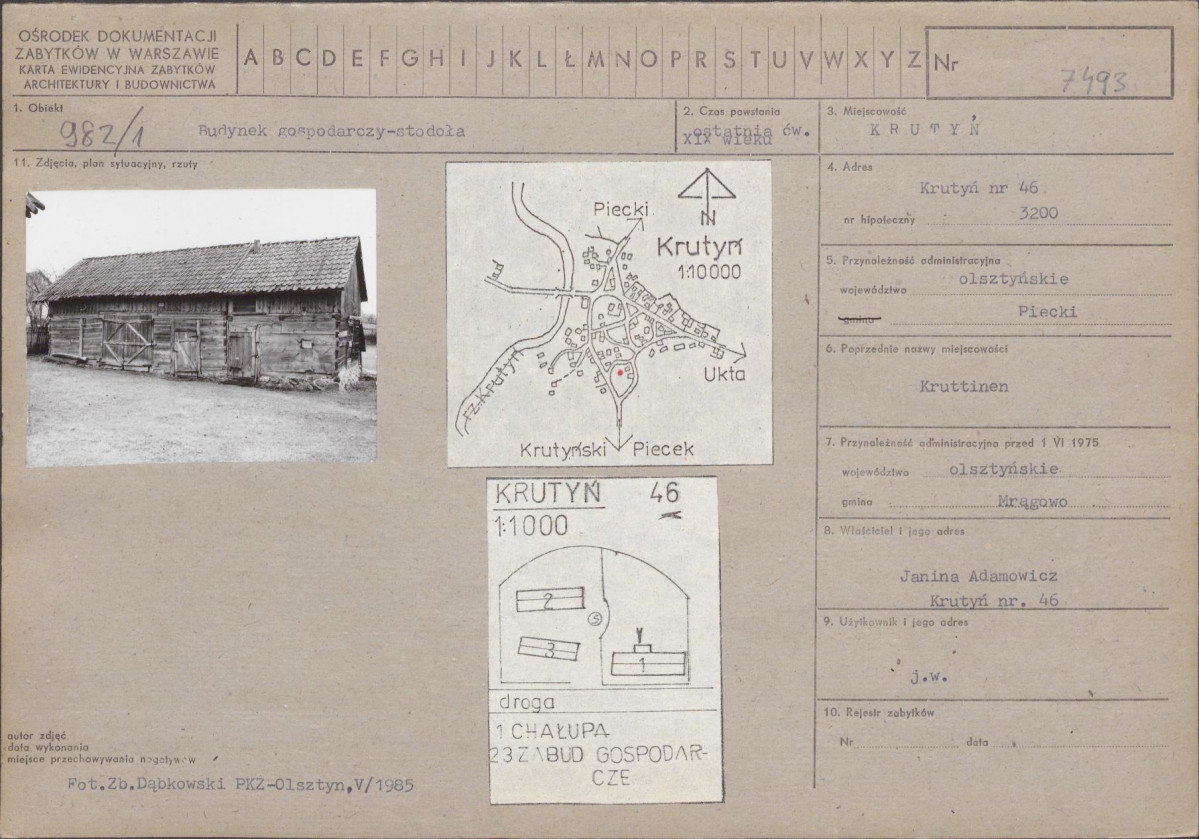 OŚRODEK DOKUMENTACJI
ZABYTKÓW W WARSZAWIE
KARTA EWIDENCYJNA ZABYTKÓW
ARCHITEKTURY I BUDOWNICTWA
A B C D E F G H I J K L Ł M N O P R S T U V W X Y Z
Nr
7493
1. Obiekt
982/1
Budynek gospodarczy-stodoła
2. Czas powstania
ostatnia ćw.
XIX wieku
3. Miejscowość
KRUTYŃ
11. Zdjęcia, plan sytuacyjny, rzuty
Piecki
N
Krutyń
1:10000
Las
rz. Krutyń
Ukta
Krutyński Piecek
KRUTYŃ 46
1:1000
2
S
3
1
droga
1 CHAŁUPA
2 3 ZABUD GOSPODAR-
CZE
4. Adres
Krutyń nr 46
nr hipoteczny 3200
5. Przynależność administracyjna
województwo olsztyńskie
gmina Piecki
6. Poprzednie nazwy miejscowości
Kruttinen
7. Przynależność administracyjna przed 1 VI 1975
województwo olsztyńskie
gmina Mrągowo
8. Właściciel i jego adres
Janina Adamowicz
Krutyń nr. 46
9. Użytkownik i jego adres
j.w.
10. Rejestr zabytków
Nr data
autor zdjęć
data wykonania
miejsce przechowywania negatywów
Fot.Zb.Dąbkowski PKZ-Olsztyn,V/1985